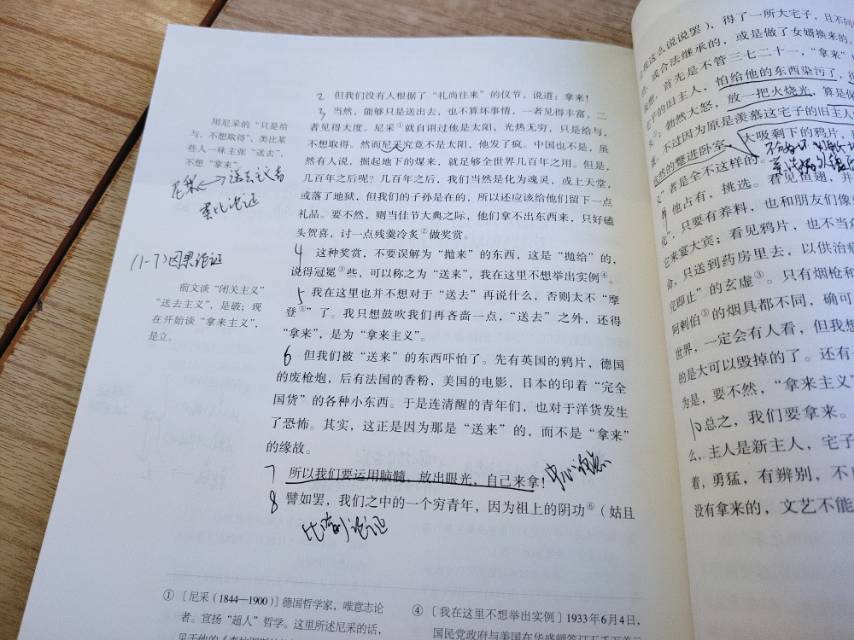 2 但我们没有人根据了“礼尚往来”的仪节，说道：拿来！
3 当然，能够只是送出去，也不算坏事情，一者见得丰富，二
者见得大度。尼采①就自诩过他是太阳，光热无穷，只是给与，
不想取得。然而尼采究竟不是太阳，他发了疯。中国也不是，虽
然有人说，掘起地下的煤来，就足够全世界几百年之用。但是，
几百年之后呢？几百年之后，我们当然是化为魂灵，或上天堂，
或落了地狱，但我们的子孙是在的，所以还应该给他们留下一点
礼品。要不然，则当佳节大典之际，他们拿不出东西来，只好磕
头贺喜，讨一点残羹冷炙②做奖赏。
4 这种奖赏，不要误解为“抛来”的东西，这是“抛给”的，
说得冠冕③些，可以称之为“送来”，我在这里不想举出实例④。
5 我在这里也并不想对于“送去”再说什么，否则太不“摩
登⑤”了。我只想鼓吹我们再吝啬一点，“送去”之外，还得
“拿来”，是为“拿来主义”。
6 但我们被“送来”的东西吓怕了。先有英国的鸦片，德国
的废枪炮，后有法国的香粉，美国的电影，日本的印着“完全
国货”的各种小东西。于是连清醒的青年们，也对于洋货发生
了恐怖。其实，这正是因为那是“送来”的，而不是“拿来”
的缘故。
7 所以我们要运用脑髓，放出眼光，自己来拿！
中心论点
8 譬如罢，我们之中的一个穷青年，因为祖上的阴功⑥（姑且
比喻论证
用尼采的“只是给
与，不想取得”，类比某
些人一味主张“送去”，
不想“拿来”。
尼采 送去主义者
类比论证
(1-7)因果论证
前文谈“闭关主义”
“送去主义”，是破；现
在开始谈“拿来主义”，
是立。
①［尼采（1844—1900）］德国哲学家，唯意志论
者。宣扬“超人”哲学。这里所述尼采的话，
④［我在这里不想举出实例］1933年6月4日，
这么说说罢），得了一所大宅子，且不问
或合法继承的，或是做了女婿换来的。
首先是不管三七二十一，“拿来”
怕给他的东西染污了，
子的旧主人，
勃然大怒，放一把火烧光，算是保
不过因为原是羡慕这宅子的旧主人
的蹩进卧室，大吸剩下的鸦片，
者是全不这样的。
他占有，挑选。看见鱼翅，并
只要有养料，也和朋友们像
它来宴大宾；看见鸦片，也不当众
只送到药房里去，以供治病
完即止”的玄虚③。只有烟枪和
阿剌伯⑨的烟具都不同，确可
世界，一定会有人看，但我想
的是大可以毁掉的了。还有
为是，要不然，“拿来主义”
10 总之，我们要拿来。
么，主人是新主人，宅子
着，勇猛，有辨别，不自
没有拿来的，文艺不能